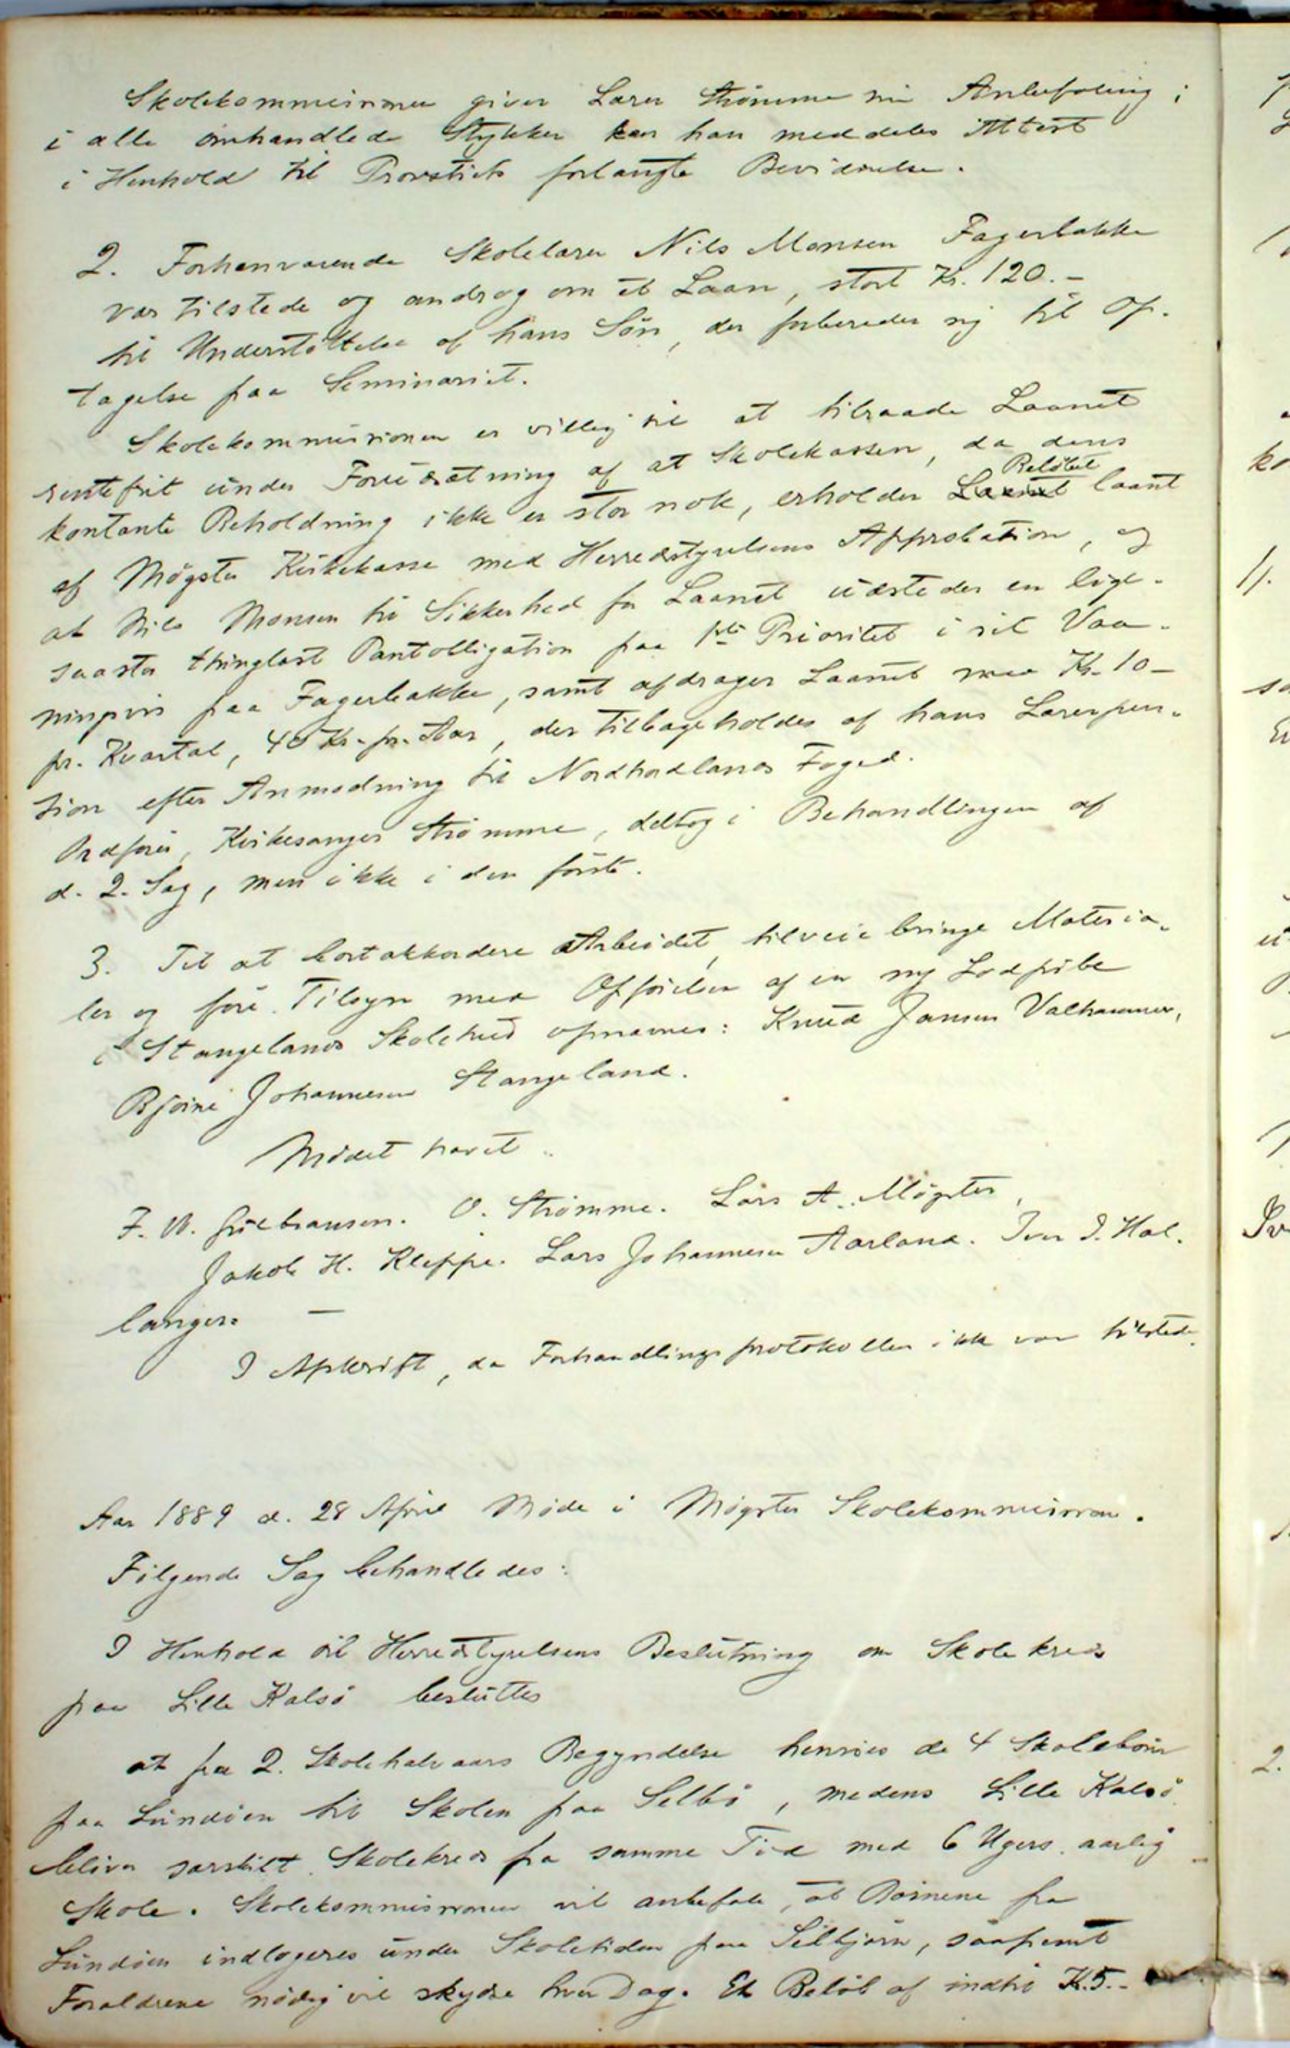 Skolekommissionen giver Lærer Strømme sin Anbefaling i
i alle omhandlede Stykker kan han meddeles Attest
i Henhold til Provstiets forlangte Bevidnelse.
2. Forhenværende Skolelærer Nils Monsen Fagerbakke
var tilstede og androg om et Laan, stort Kr. 120.-
til Understøttelse af hans Søn, der forbereder sig til Op-
tagelse paa Seminariet.
Skolekommissionen er villig til at tilraade Laanet
rentefrit under Forudsætning af at Skolekassen, da dens
kontante Beholdning ikke er stor nok, erholder Beløbet laant
af Møgster Kirkekasse med Herredstyrelsens Approbation, og
at Nils Monsen til Sikkerhed for Laanet udsteder en lige-
saastor thinglæst Pantobligation paa 1ste Prioritet i sit Vaa-
ningshus paa Fagerbakke, samt afdrager Laanet med Kr. 10-
pr. Kvartal, 40 Kr. pr. Aar, der tilbageholdes af hans Lærerpen-
sion efter Anmodning til Nordhordlands Foged.
Ordfører, Kirkesanger Strømme, deltog i Behandlingen af
d. 2. Sag, men ikke i den første.
3. Til at bortakkordere Arbeidet, tilveiebringe Materia-
ler og føre Tilsyn med Opførelsen af en ny Lodpibe
i Stangelands Skolehus opnævnes: Knud Jansen Valhammer,
Bjørne Johannesen Stangeland.
Mødet hævet.
F. W. Gulbransen. O. Strømme. Lars A. Møgster,
Jakob H. Kleppe. Lars Johannesen Aarland. Iver I. Hal-
langer. —
I Afskrift, da Forhandlingsprotokollen ikke var tilstede.
Aar 1889 d. 28 April Møde i Møgster Skolekommission.
Følgende Sag behandledes:
I Henhold til Herredstyrelsens Beslutning om Skolekreds
paa Lille Kalsø besluttes
at fra 2. Skolehalvaars Begyndelse henvises de 4 Skolebørn
paa Lundøen til Skolen paa Selbø, medens Lille Kalsø
bliver særskilt Skolekreds fra samme Tid med 6 Ugers aarlig
Skole. Skolekommissionen vil anbefale, at Børnene fra
Lundøen indlogeres under Skoletiden paa Selbjørn, saafremt
Forældrene nødig vil skydse hver Dag. Et Beløb af indtil K. 5.-